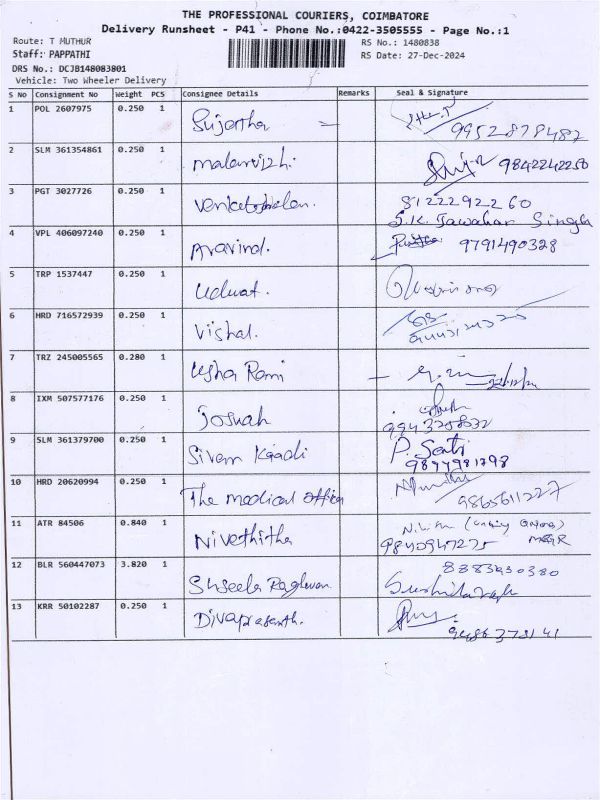 THE PROFESSIONAL COURIERS, COIMBATORE
Delivery Runsheet - P41 - Phone No.:0422-3505555 - Page No.:1
Route: T MUTHUR RS No.: 1480838
Staff: PAPPATHI RS Date: 27-Dec-2024
DRS No.: DCJB148083801
Vehicle: Two Wheeler Delivery
S No Consignment No Weight PCS Consignee Details Remarks Seal & Signature
1 POL 2607975 0.250 1 Sujatha 9952878482
2 SLM 361354861 0.250 1 malarvizhi. 9842242250
3 PGT 3027726 0.250 1 8122292260
S.K. Jawahar Singh
4 VPL 406097240 0.250 1 Aravind. 9791490328
5 TRP 1537447 0.250 1 Udwat.
6 HRD 716572939 0.250 1 Vishal.
7 TRZ 245005565 0.280 1 Usha Rani
8 IXM 507577176 0.250 1 Josuah
9 SLM 361379700 0.250 1 Sivam Kaadi P. Sati
10 HRD 20620994 0.250 1 The medical officer 9865611227
11 ATR 84506 0.840 1 Nivethitha
12 BLR 560447073 3.820 1 Shseela Raghavan
13 KRR 50102287 0.250 1 Divaprasanth.